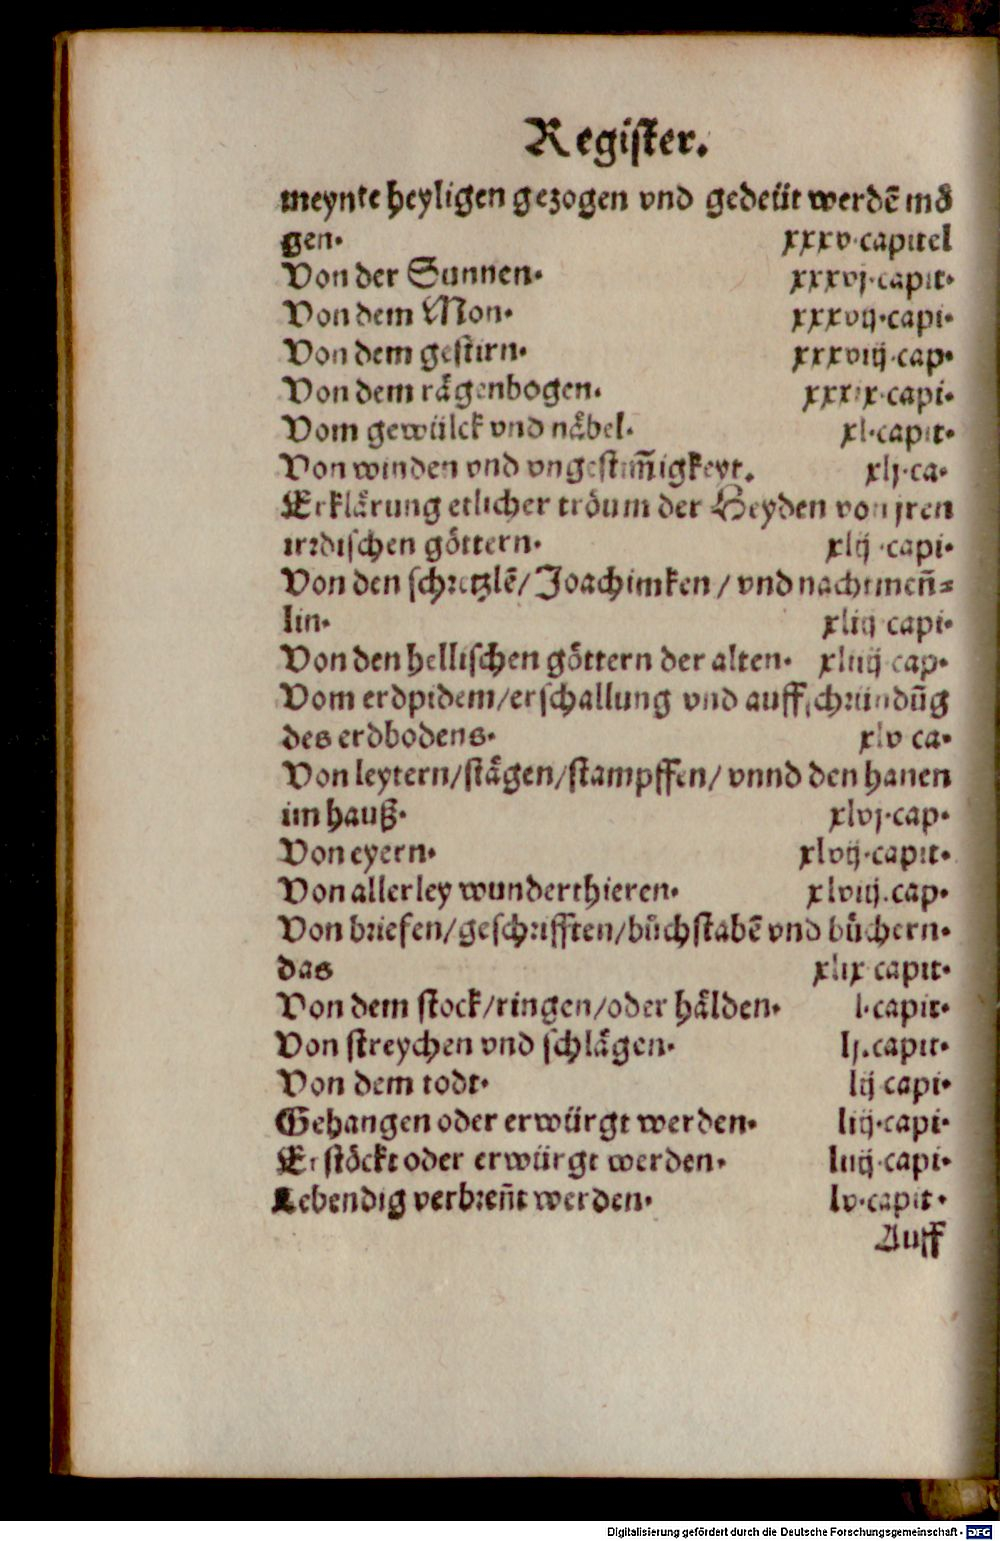 Register.
meynte heyligen gezogen vnd gedeüt werdẽ mö
gen. xxxv.capitel
Von der Sunnen. xxxvj.capit.
Von dem Mon. xxxvij.capi.
Von dem gestirn. xxxviij.cap.
Von dem rägenbogen. xxxix.capi.
Vom gewülck vnd näbel. xl.capit.
Von winden vnd vngestim̃igkeyt. xlj.ca.
Erklärung etlicher tröum der Heyden von jren
irrdischen göttern. xlij.capi.
Von den schretzlẽ/Joachimken/vnd nachtmeñ=
lin. xliij capi.
Von den hellischen göttern der alten. xliiij cap.
Vom erdpidem/erschallung vnd auffschründũg
des erdbodens. xlv ca.
Von leytern/stägen/stampffen/vnnd den hanen
im hauß. xlvj.cap.
Von eyern. xlvij.capit.
Von allerley wunderthieren. xlviij.cap.
Von briefen/geschrifften/bůchstabẽ vnd bücher̈n.
das xlix capit.
Von dem stock/ringen/oder hälden. l.capit.
Von streychen vnd schlägen. lj.capit.
Von dem todt. lij capi.
Gehangen oder erwürgt werden. liij.capi.
Erstöckt oder erwürgt werden. liiij.capi.
Lebendig verbreñt werden. lv.capit.
Auff
Digitalisierung gefördert durch die Deutsche Forschungsgemeinschaft - DFG